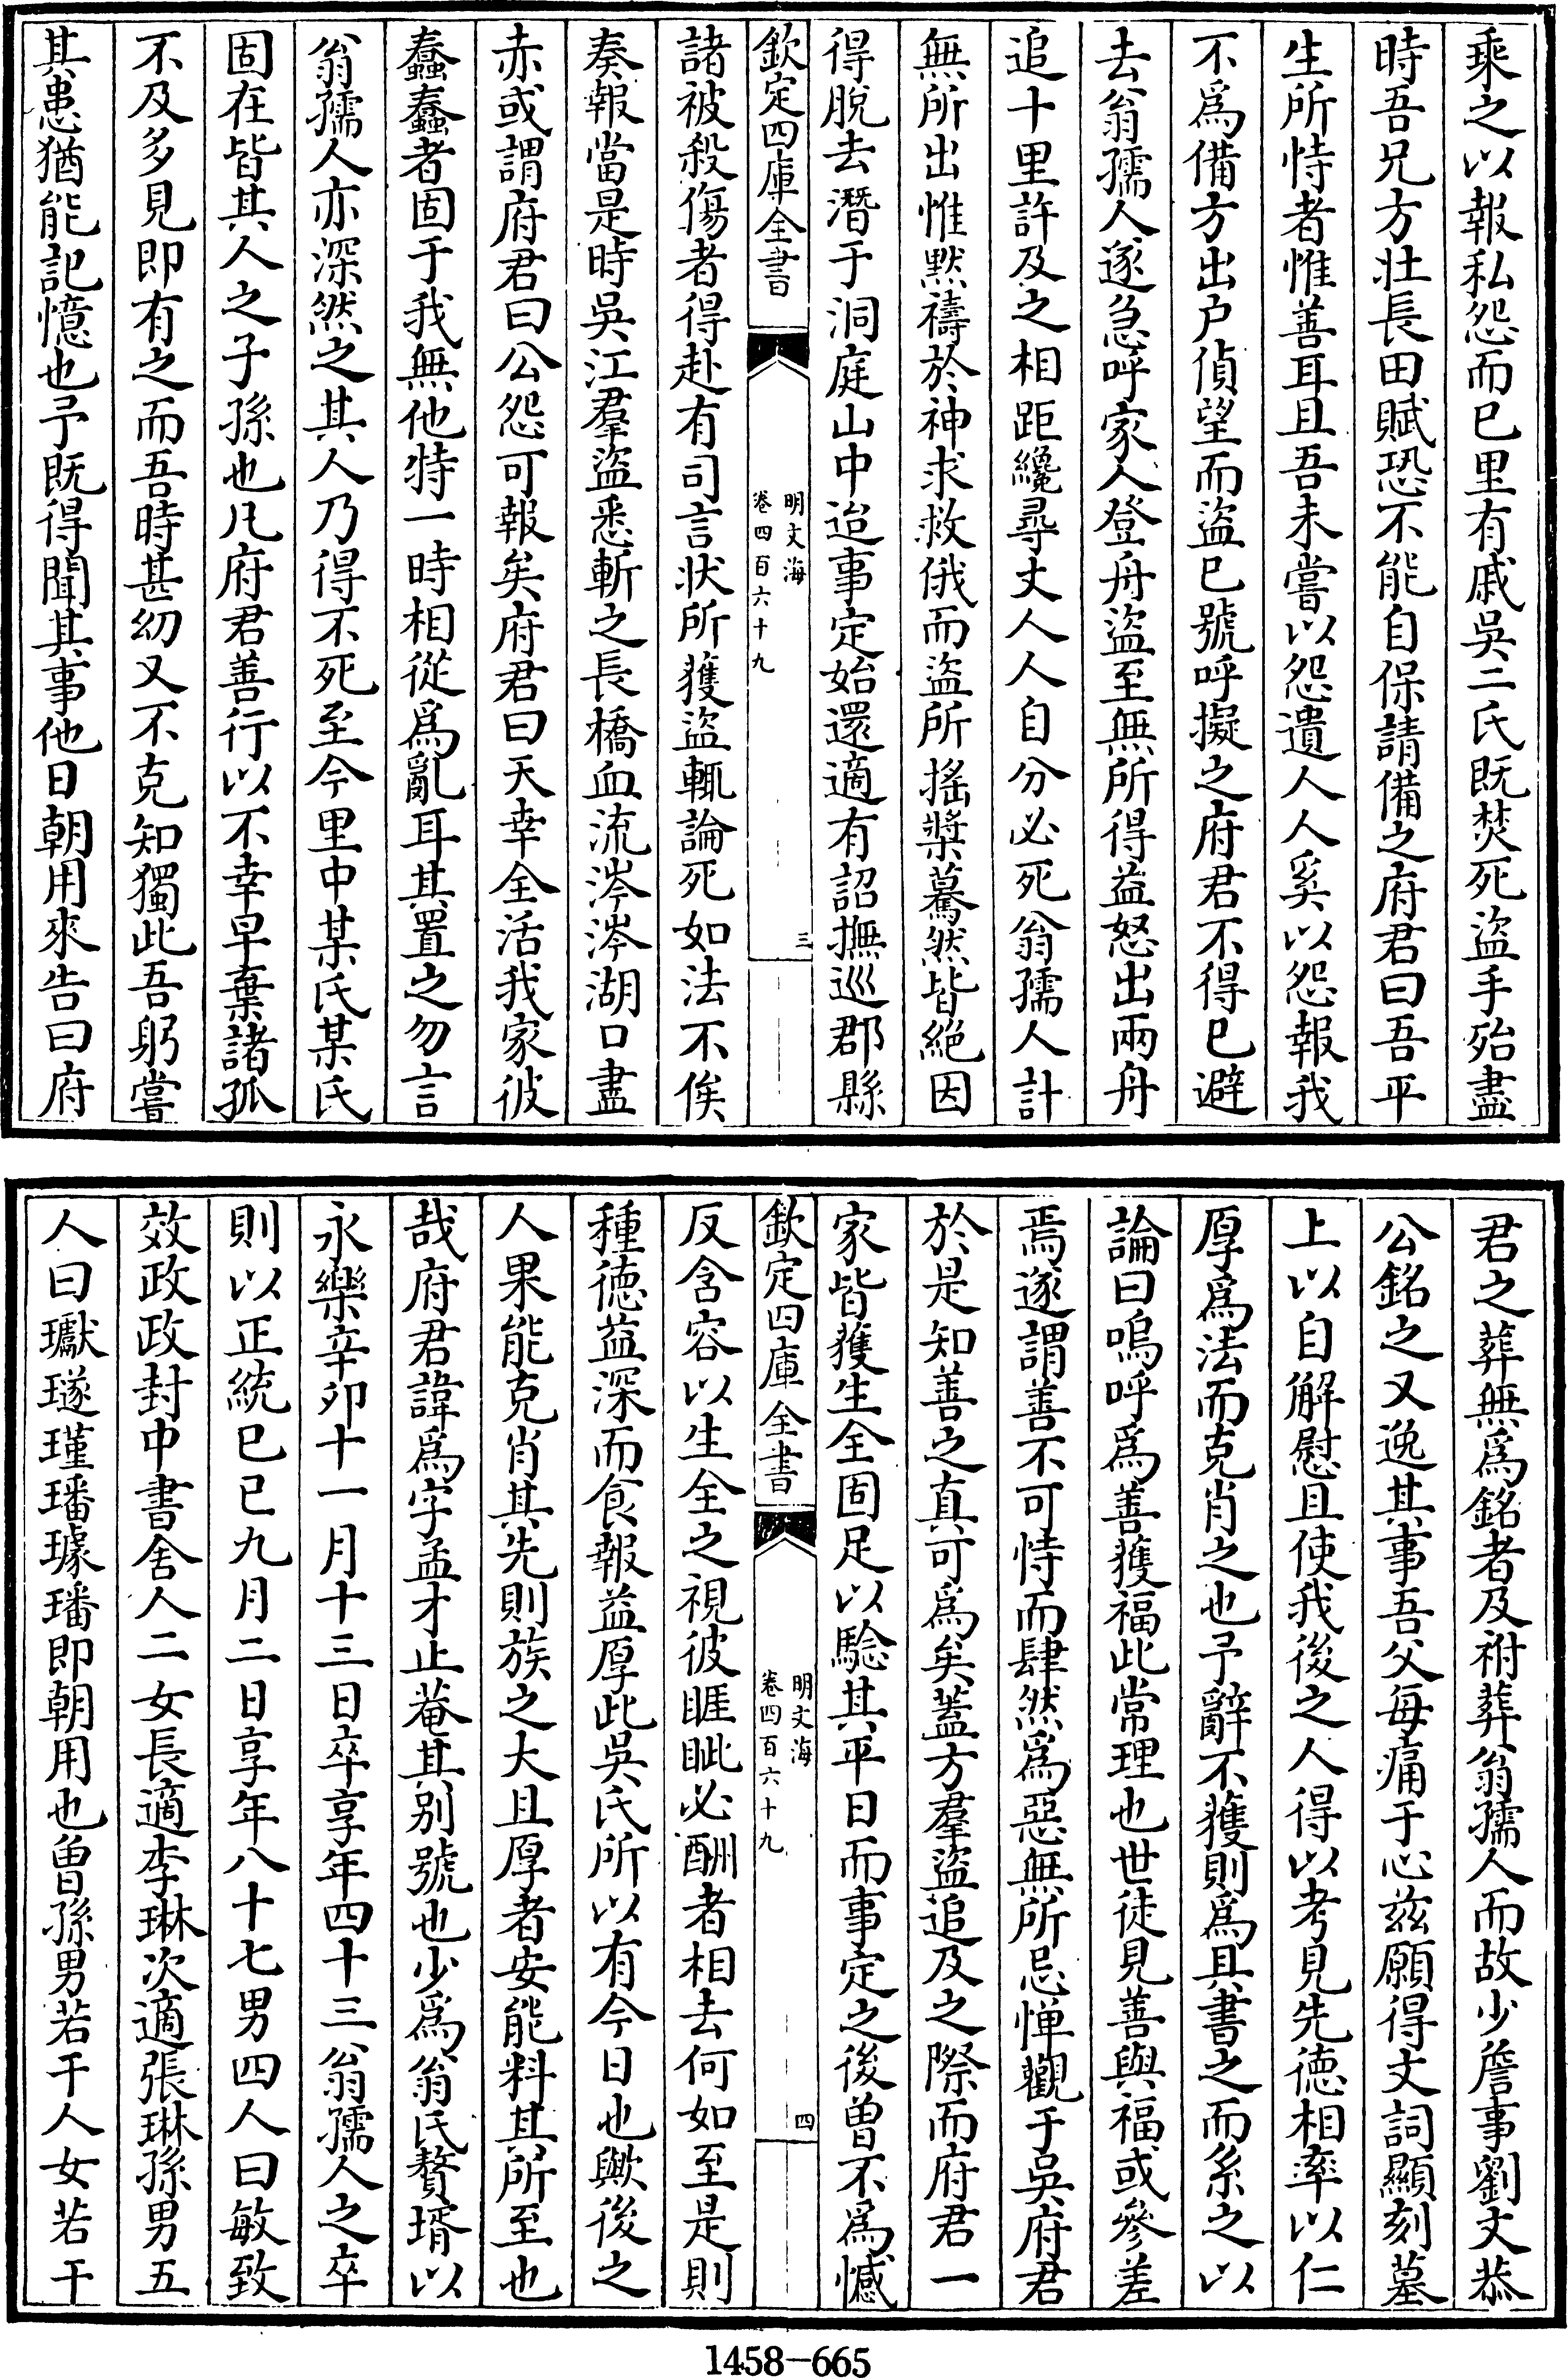 乘之以報私怨而已里有戚吳二氏既焚死盜手殆盡
時吾兄方壯長田賦恐不能自保請備之府君曰吾平
生所恃者惟善耳且吾未嘗以怨遺人人奚以怨報我
不爲備方出戶偵望而盜已號呼擬之府君不得已避
去翁孺人遂急呼家人登舟盜至無所得益怒出兩舟
追十里許及之相距纔尋丈人人自分必死翁孺人計
無所出惟默禱於神求救俄而盜所搖槳驀然皆絕因
得脫去潛于洞庭山中迨事定始還適有詔撫巡郡縣
欽定四庫全書
明文海
卷四百六十九
三
諸被殺傷者得赴有司言狀所獲盜輒論死如法不俟
奏報當是時吳江羣盜悉斬之長橋血流涔涔湖口盡
赤或謂府君曰公怨可報矣府君曰天幸全活我家彼
蠢蠢者固于我無他特一時相從爲亂耳其置之勿言
翁孺人亦深然之其人乃得不死至今里中某氏某氏
固在皆其人之子孫也凡府君善行以不幸早棄諸孤
不及多見即有之而吾時甚幼又不克知獨此吾躬嘗
其患猶能記憶也予既得聞其事他日朝用來告曰府
君之葬無爲銘者及祔葬翁孺人而故少詹事劉文恭
公銘之又逸其事吾父每痛于心兹願得文詞顯刻墓
上以自解慰且使我後之人得以考見先德相率以仁
厚爲法而克肖之也予辭不獲則爲具書之而系之以
論曰嗚呼爲善獲福此常理也世徒見善與福或參差
焉遂謂善不可恃而肆然爲惡無所忌憚觀于吳府君
於是知善之真可爲矣蓋方羣盜追及之際而府君一
家皆獲生全固足以騐其平日而事定之後曾不爲憾
欽定四庫全書
明文海
卷四百六十九
四
反含容以生全之視彼睚眦必酬者相去何如至是則
種德益深而食報益厚此吳氏所以有今日也歟後之
人果能克肖其先則族之大且厚者安能料其所至也
哉府君諱爲字孟才止菴其别號也少爲翁氏贅壻以
永樂辛卯十一月十三日卒享年四十三翁孺人之卒
則以正統己巳九月二日享年八十七男四人曰敏致
效政政封中書舍人二女長適李琳次適張琳孫男五
人曰瓛璲瑾璠璩璠即朝用也曾孫男若干人女若干
1458-665